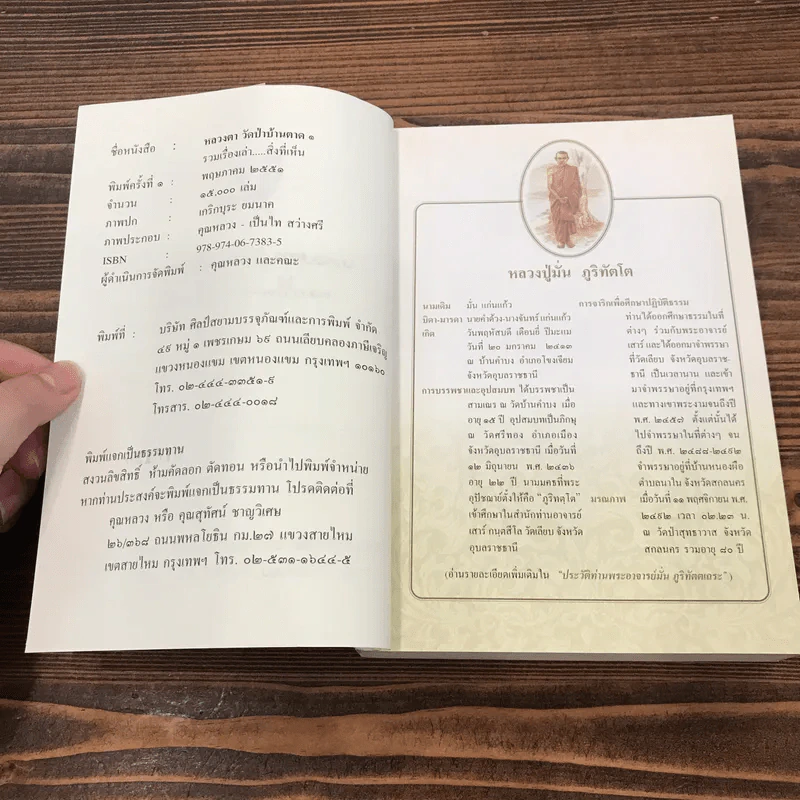 ชื่อหนังสือ : หลวงตา วัดป่าบ้านตาด ๑
รวมเรื่องเล่า.....สิ่งที่เห็น
พิมพ์ครั้งที่ ๑ : พฤษภาคม ๒๕๕๑
จำนวน : ๑๕,๐๐๐ เล่ม
ภาพปก : เกริกบุระ ยมนาค
ภาพประกอบ : คุณหลวง - เป็นไท สว่างศรี
ISBN : 978-974-06-7383-5
ผู้ดำเนินการจัดพิมพ์ : คุณหลวง และคณะ
พิมพ์ที่ : บริษัท ศิลป์สยามบรรจุภัณฑ์และการพิมพ์ จำกัด
๔๙ หมู่ ๑ เพชรเกษม ๖๙ ถนนเลียบคลองภาษีเจริญ
แขวงหนองแขม เขตหนองแขม กรุงเทพฯ ๑๐๑๖๐
โทร. ๐๒-๔๔๔-๓๓๕๑-๙
โทรสาร. ๐๒-๔๔๔-๐๐๑๘
พิมพ์แจกเป็นธรรมทาน
สงวนลิขสิทธิ์ ห้ามคัดลอก ตัดทอน หรือนำไปพิมพ์จำหน่าย
หากท่านประสงค์จะพิมพ์แจกเป็นธรรมทาน โปรดติดต่อที่
คุณหลวง หรือ คุณสุทัศน์ ชาญวิเศษ
๒๖/๓๖๘ ถนนพหลโยธิน กม.๒๗ แขวงสายไหม
เขตสายไหม กรุงเทพฯ โทร. ๐๒-๕๓๑-๑๖๔๔-๕
หลวงปู่มั่น ภูริทัตโต
นามเดิม มั่น แก่นแก้ว
บิดา-มารดา นายคำด้วง-นางจันทร์ แก่นแก้ว
เกิด วันพฤหัสบดี เดือนยี่ ปีมะแม
วันที่ ๒๐ มกราคม ๒๔๑๓
ณ บ้านคำบง อำเภอโขงเจียม
จังหวัดอุบลราชธานี
การบรรพชาและอุปสมบท ได้บรรพชาเป็น
สามเณร ณ วัดบ้านคำบง เมื่อ
อายุ ๑๕ ปี อุปสมบทเป็นภิกษุ
ณ วัดศรีทอง อำเภอเมือง
จังหวัดอุบลราชธานี เมื่อวันที่
๑๒ มิถุนายน พ.ศ. ๒๔๓๖
อายุ ๒๒ ปี นามมคธที่พระ
อุปัชฌาย์ตั้งให้คือ "ภูริทตฺโต"
เข้าศึกษาในสำนักท่านอาจารย์
เสาร์ กนฺตสีโล วัดเลียบ จังหวัด
อุบลราชธานี
การจาริกเพื่อศึกษาปฏิบัติธรรม
ท่านได้ออกศึกษาธรรมในที่
ต่างๆ ร่วมกับพระอาจารย์
เสาร์ และได้ออกมาจำพรรษา
ที่วัดเลียบ จังหวัดอุบลราช-
ธานี เป็นเวลานาน และเข้า
มาจำพรรษาอยู่ที่กรุงเทพฯ
และทางเขาพระงามจนถึงปี
พ.ศ. ๒๔๕๗ ตั้งแต่นั้นได้
ไปจำพรรษาในที่ต่างๆ จน
ถึงปี พ.ศ. ๒๔๘๘-๒๔๙๒
จำพรรษาอยู่ที่บ้านหนองผือ
ตำบลนาใน จังหวัดสกลนคร
มรณภาพ เมื่อวันที่ ๑๑ พฤศจิกายน พ.ศ.
๒๔๙๒ เวลา ๐๒.๒๓ น.
ณ วัดป่าสุทธาวาส จังหวัด
สกลนคร รวมอายุ ๘๐ ปี
(อ่านรายละเอียดเพิ่มเติมใน "ประวัติท่านพระอาจารย์มั่น ภูริทัตตเถระ")